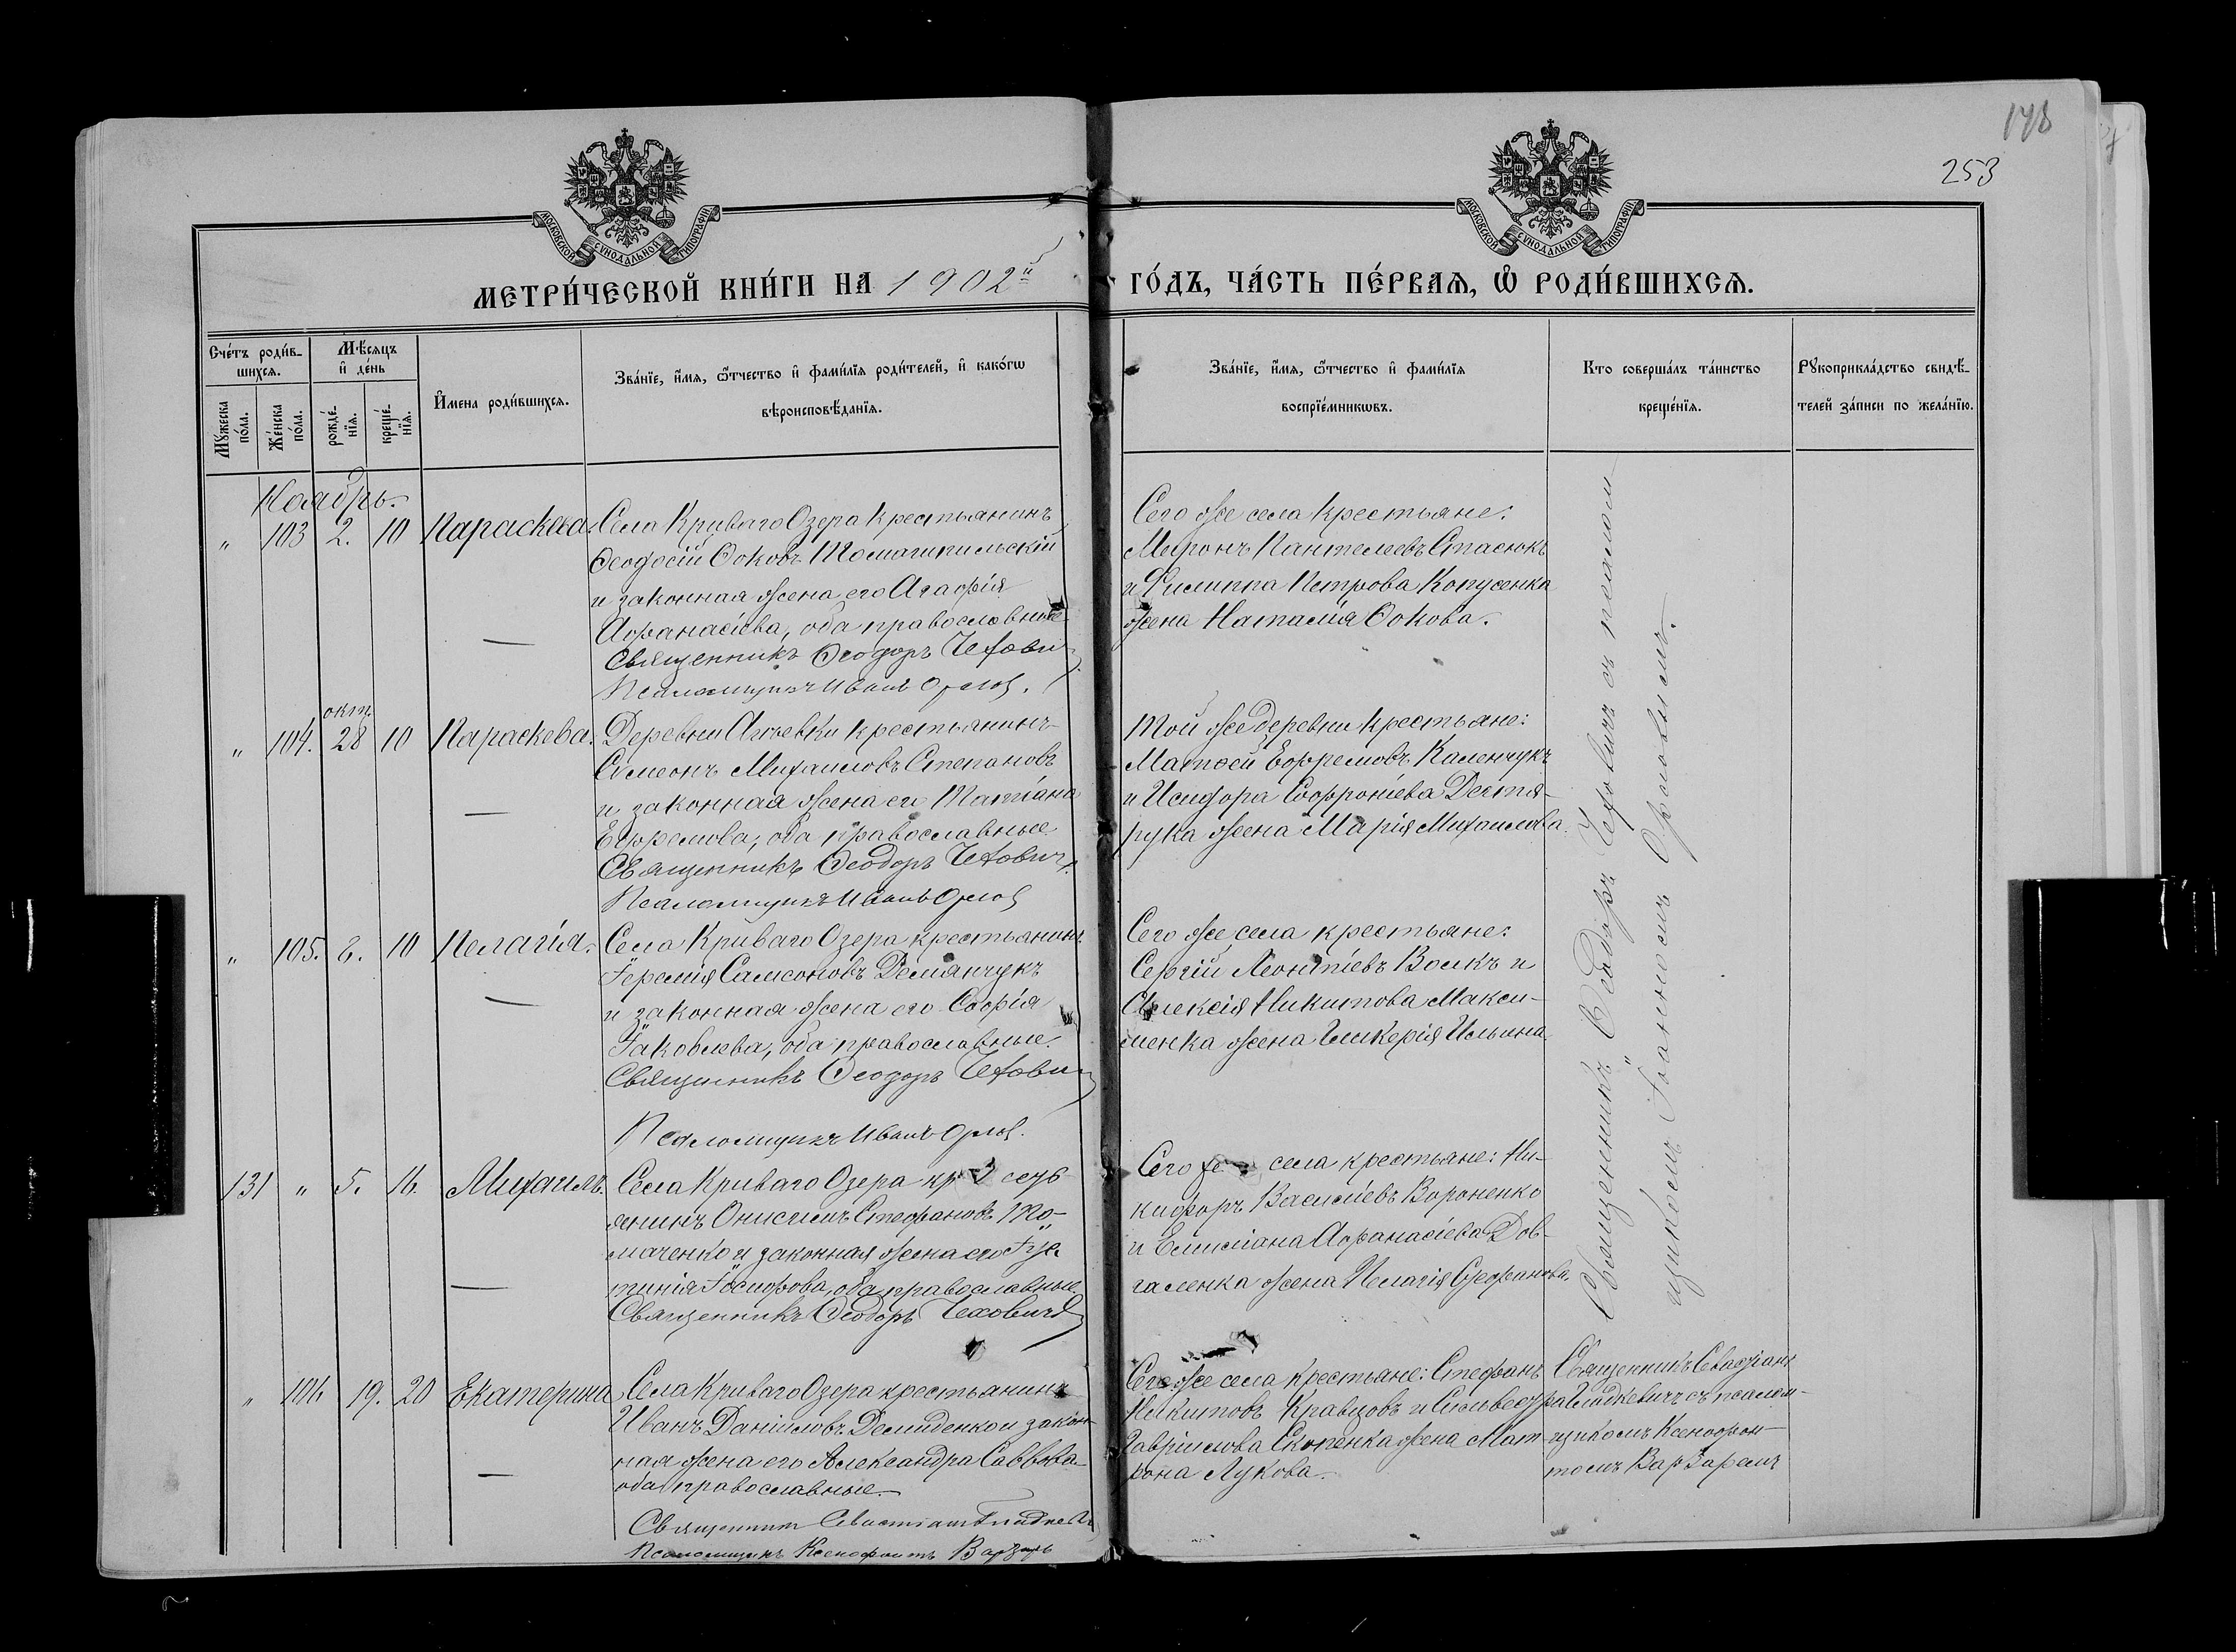 178
253
МОСКОВСКОЙ СѴНОДАЛЬНОЙ ТИПОГРАФІИ
МОСКОВСКОЙ СѴНОДАЛЬНОЙ ТИПОГРАФІИ
МЕТРИ́ЧЕСКОЙ КНИ́ГИ НА 1902й ГО́ДЪ, ЧА́СТЬ ПЕ́РВАЯ, Ѽ РОДИ́ВШИХСЯ.
Сче́тъ роди́в-
шихся.
Мꙋ́жеска по́ла.
Же́нска по́ла.
Мѣ́сяцъ
и҆ де́нь
рожде́-
нїя.
креще́-
нїя.
И҆мена роди́вшихся.
Зва́нїе, и҆́мя, ѻ҆́тчество и҆ фами́лїя роди́телей, и҆ како́гѡ
вѣроисповѣ́данїя.
Зва́нїе, и҆́мя, ѻ҆́тчество и҆ фами́лїя
воспрїе́мникѡвъ.
Кто соверша́лъ та́инство
креще́нїя.
Рꙋкоприкла́дство свидѣ́-
телей за́писи по жела́нїю.
Ноябрь.
„ 103 2. 10 Параскева.
Села Криваго Озера крестьянинъ
Ѳеодосій Ѳоковъ Томашпильскій
и законная жена его Агафія
Аѳанасіева, оба православные
Священникъ Ѳеодоръ Чехович
Псаломщикъ Иванъ Орлов.
Сего же села крестьяне:
Миронъ Пантелеевъ Стасюкъ
и Филиппа Петрова Копусенка
жена Наталія Ѳокова.
„ 104. окт. 28 10 Параскева.
Деревни крестьянинъ
Симеонъ Михаиловъ Степановъ
и законная жена его Татіана
Ефремова, оба православные
Священникъ Ѳеодоръ Чехович
Псаломщикъ Иванъ Орлов
Той же деревни крестьяне:
Матѳей Ефремовъ Каленчукъ
и Исидора Софроніева Дегтя-
рука жена Марія Михаилова.
„ 105. 6. 10 Пелагія.
Села Криваго Озера крестьянинъ
Іеремія Самсоновъ Демянчукъ
и законная жена его Софія
Іаковлева, оба православные.
Священникъ Ѳеодоръ Чехович
Псаломщикъ Иванъ Орлов.
Сего же села крестьяне:
Сергій Леонтіевъ Волкъ и
Алексія Никитова Макси-
менка жена Гликерія Ильина.
131 „ 5. 16. Михаилъ.
Села Криваго Озера кресть-
янинъ Онисимъ Стефановъ То-
маченко и законная жена его Іус-
тинія Іосифова, оба православные.
Священникъ Ѳеодоръ Чехович
Сего же села крестьяне: Ни-
кифоръ Василіевъ Вороненко
и Емиліана Аѳанасіева Дов-
галенка жена Пелагія Стефанова.
Священникъ Ѳеодоръ Чеховичъ съ псалом
щикомъ Іоанномъ Орловымъ.
„ 106 19. 20 Екатерина
Села Криваго Озера крестьянинъ
Иванъ Даніиловъ Демиденко и закон-
ная жена его Александра Саввова
оба православные.
Священник
Псаломщикъ Ксенофонтъ Варзарь
Сего же села крестьяне: Стефанъ
Никитовъ Кравцовъ и Сильвестра
Гавріилова Скопенка жена Мат-
рона Лукова.
Священникъ Севастіанъ
Гладкевичъ съ псалом-
щикомъ Ксенофон-
томъ Варзаремъ